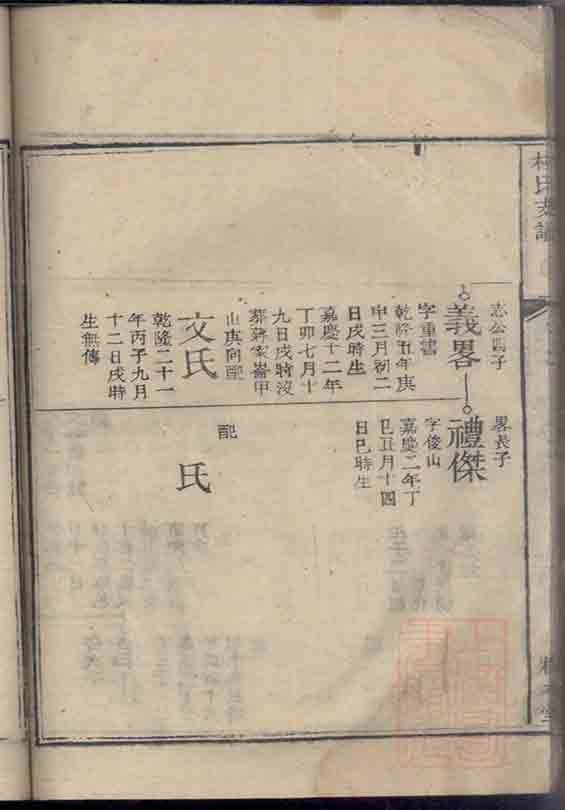 志公四子
義畧
字重書
乾隆五年庚
申三月初二
日戌時生
嘉慶十二年
丁卯七月十
九日戌時沒
山庚向配
文氏
乾隆二十一
年丙子九月
十二日戌時
生無傳
畧長子
禮傑
字俊山
嘉慶二年丁
巳五月十四
日巳時生
配
氏